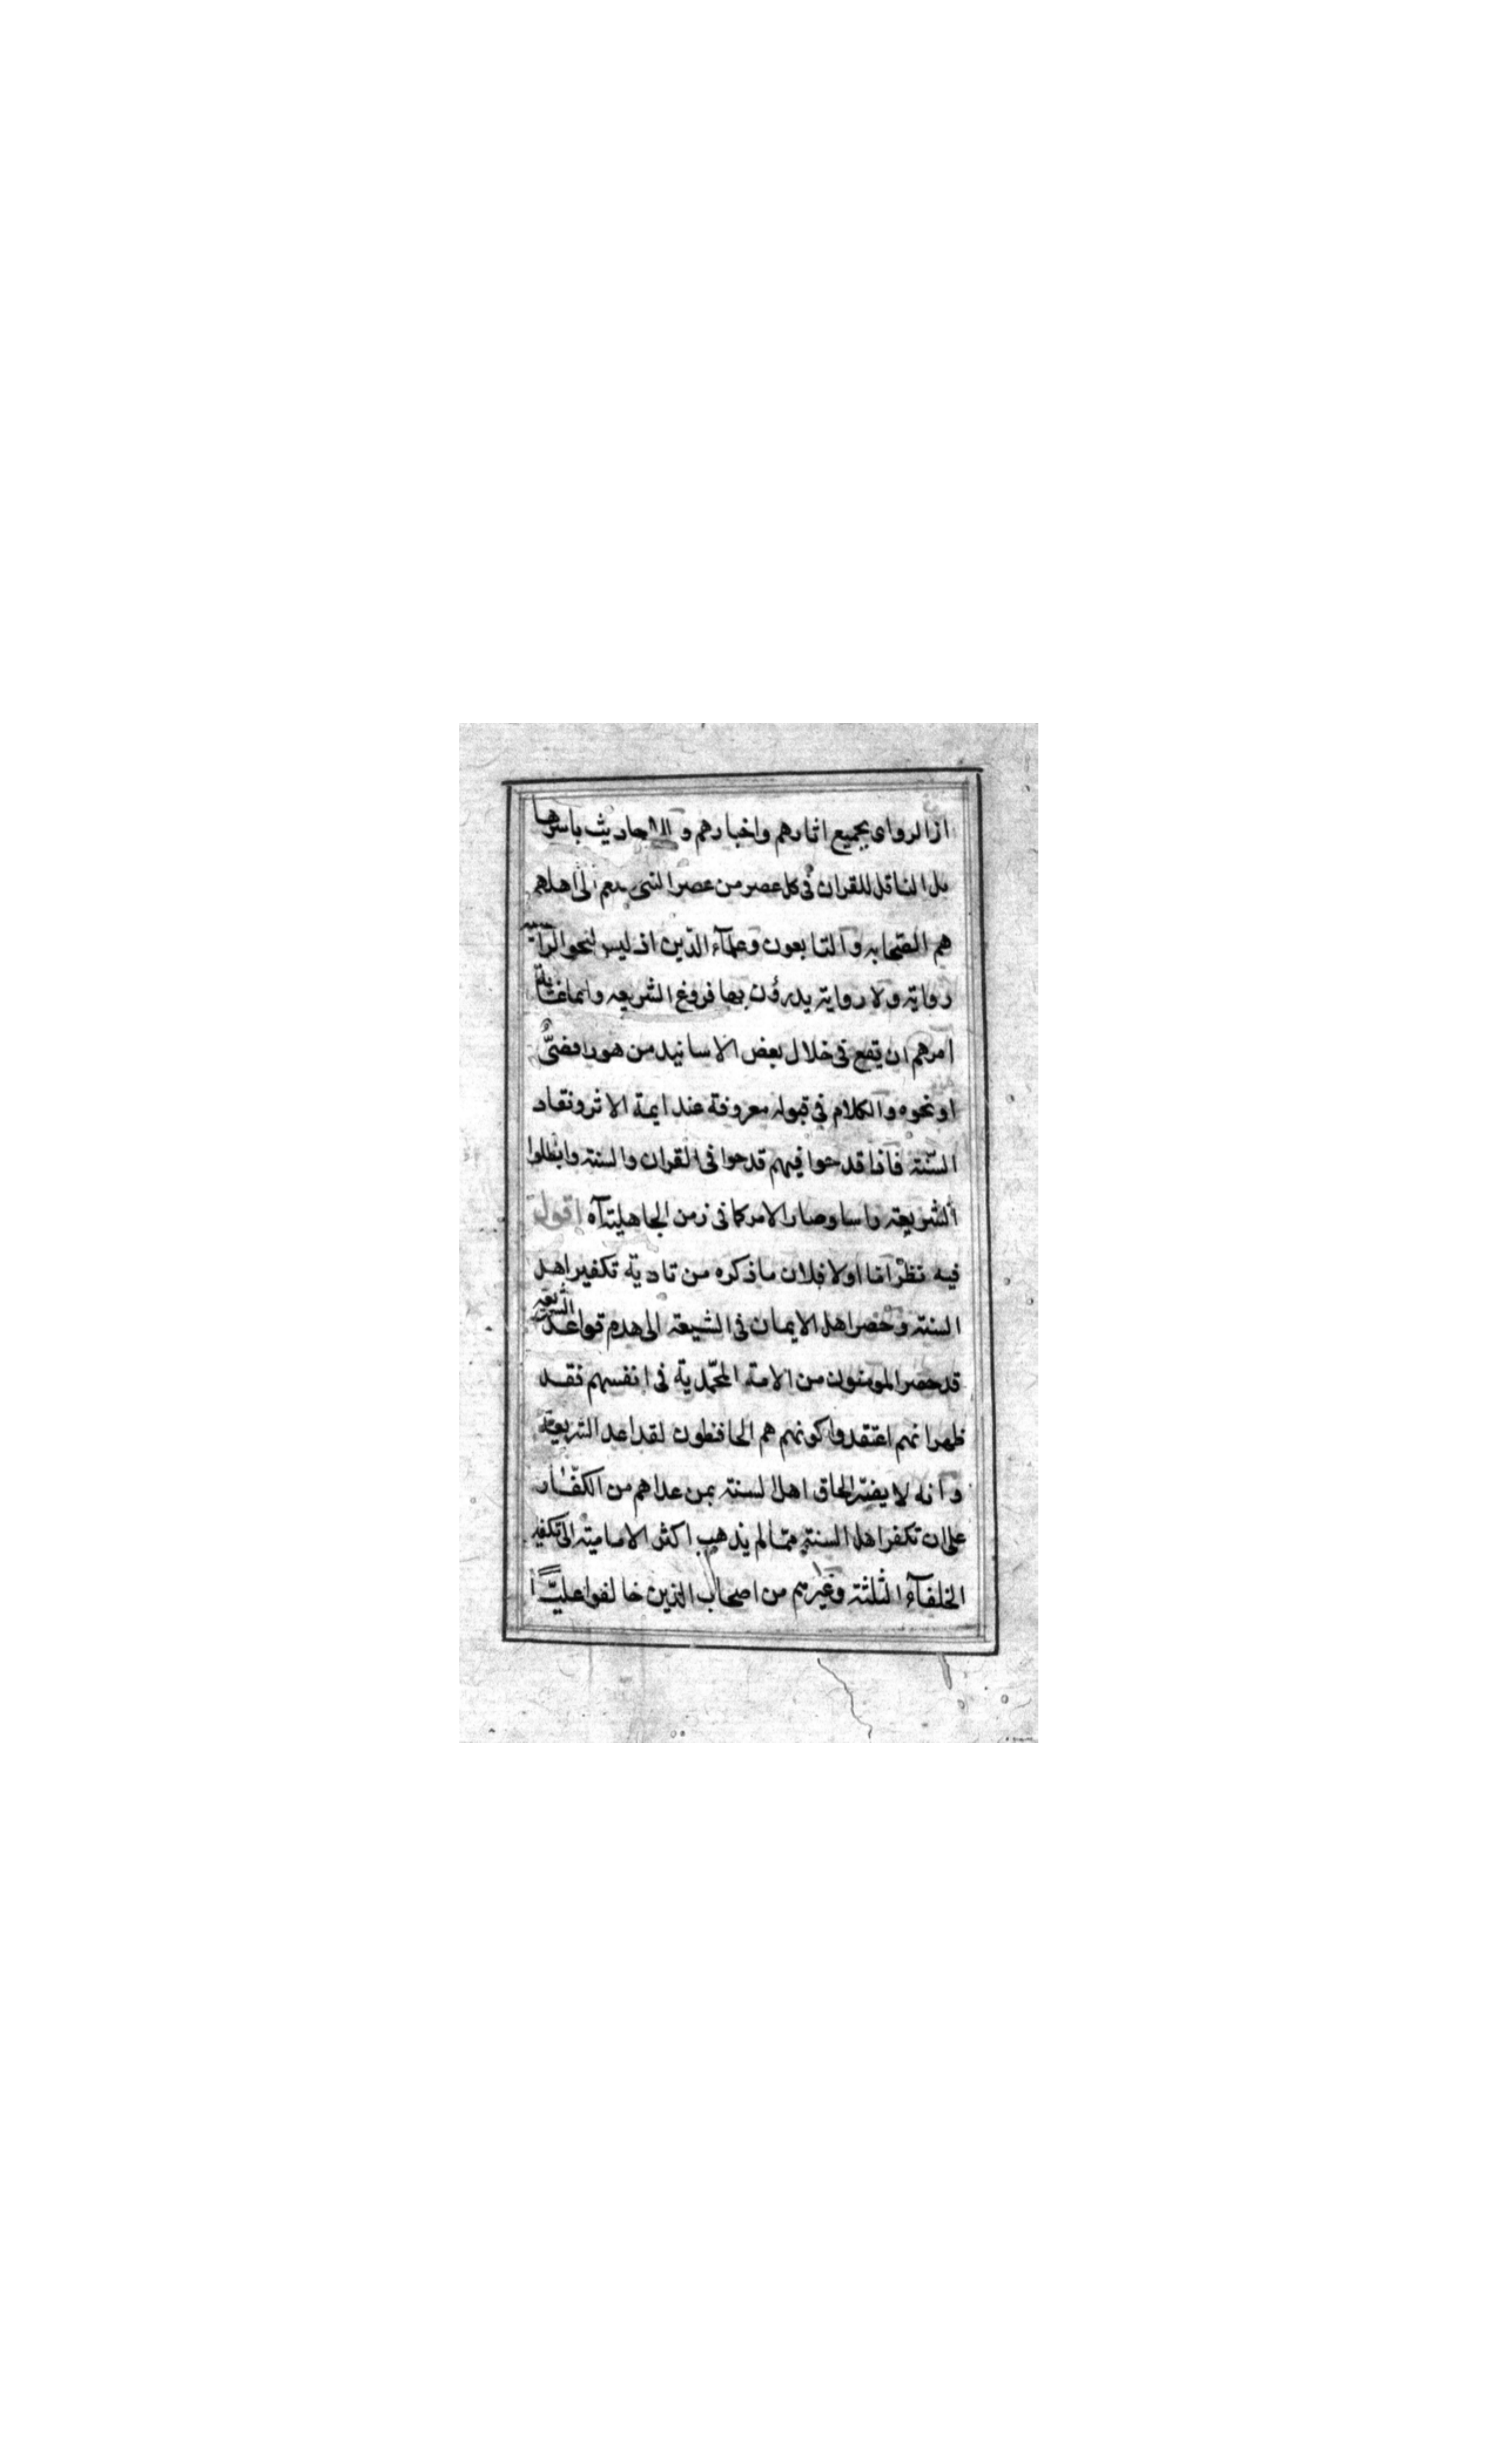 اذ الرواى بجميع اثارهم واخبارهم و الاحاديث باسرها
بل الناقل للقران فى كل عصر من عصر النبى الى اهلهم
هم الصحابه والتابعون وعلمآء الدين اذ ليس لنحو الرافضيه
رواية ولا رواية يدرؤن بها فروع الشريعه وانما غاية
امرهم ان يقع فى خلال بعض الاسانيد من هو رافضىٌّ
او نحوه والكلام فى قبوله معروفة عند ايمة الاثر ونقاد
السّنة فاذا قدحوا فيهم قدحوا فى القران والسنة وابطلوا
الشريعة راسا وصار الامر كما فى زمن الجاهلية آه اقول
فيه نظر اما اولا فلان ما ذكره من تادية تكفير اهل
السنة وحصر اهل الايمان فى الشيعة الى هدم قواعد الشريعه
قد حصر المومنون من الامة المحمّدية فى انفسهم فقد
ظهر انهم اعتقدوا كونهم هم الحافظون لقواعد الشريعة
وانه لا يضر الحاق اهل السنة بمن عداهم من الكفّار
على ان تكفر اهل السنة ممّا لم يذهب اكثر الامامية الى تكفير
الخلفآء الثلثة وغيرهم من اصحاب الذين خالفوا عليّاً